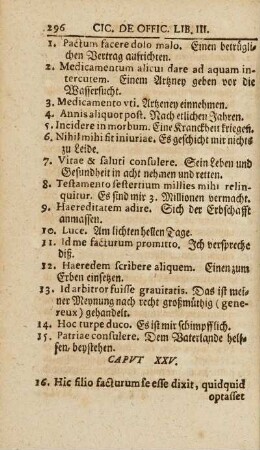 296 CIC. DE OFFIC. LIB. III.
1. Pactum facere dolo malo. Einen betrüglichen
Vertrag aufrichten.
2. Medicamentum alicui dare ad aquam intercutem.
Einem Artzney geben vor die
Wassersucht.
3. Medicamento vti. Artzeney einnehmen.
4. Annis aliquot post. Nach etlichen Jahren.
5. Incidere in morbum. Eine Kranckheit kriegen.
6. Nihil mihi fit iniuriae. Es geschicht mir nichts
zu Leide.
7. Vitae & saluti consulere. Sein Leben und
Gesundheit in acht nehmen und retten.
8. Testamento sestertium millies mihi relinquitur.
Es sind mir 3. Millionen vermacht.
9. Haereditatem adire. Sich der Erbschafft
anmassen.
10. Luce. Am lichten hellen Tage.
11. Id me facturum promitto. Ich verspreche
diß.
12. Haeredem scribere aliquem. Einen zum
Erben einsetzen.
13. Id arbitror fuisse grauitatis. Das ist meiner
Meynung nach recht großmüthig (genereux)
gehandelt.
14. Hoc turpe duco. Es ist mir schimpfflich.
15. Patriae consulere. Dem Vaterlande helffen,
beystehen.
CAPVT XXV.
16. Hic filio facturum se esse dixit, quidquid
optasset